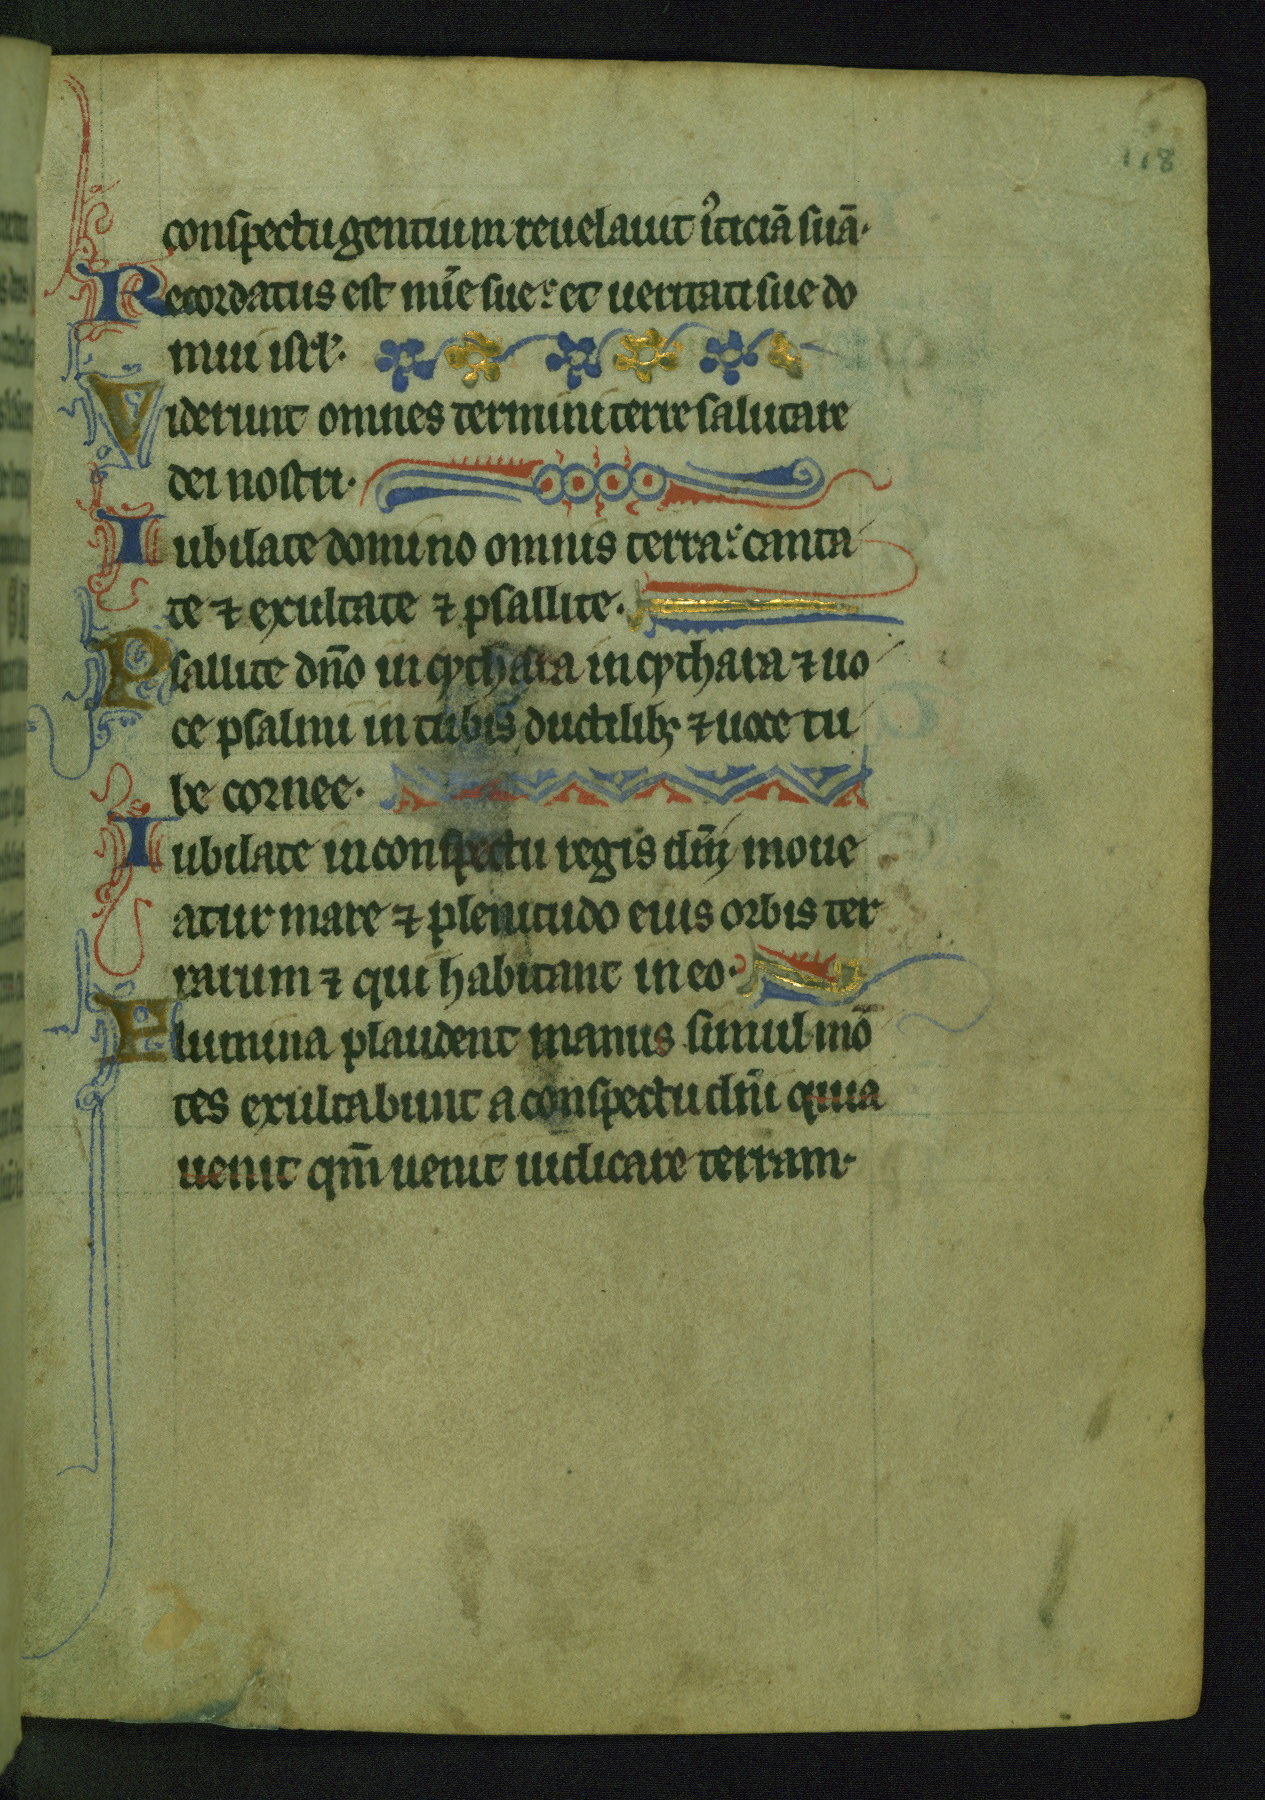 118
conspectu gentium reuelauit iᷤticiā suā·
Recordatus est mīe sue: et ueritati sue do
mui isrl̄·
Viderunt omnes termini terre salutare
dei nostri·
Iubilate domino omnis terra: canta
te ⁊ exultate ⁊ psallite·
Psallite dn̄o in cythara in cythara ⁊ uo
ce psalmi in tubis ductilibꝫ ⁊ uoce tu
be cornee·
Iubilate in conspectu regis dn̄i moue
atur mare ⁊ plenitudo eius orbis ter
rarum ⁊ qui habitant in eo·
Flumina plaudent manus simul mō
tes exultabunt a conspectu dn̄i quia
uenit qm̄ uenit iudicare terram·